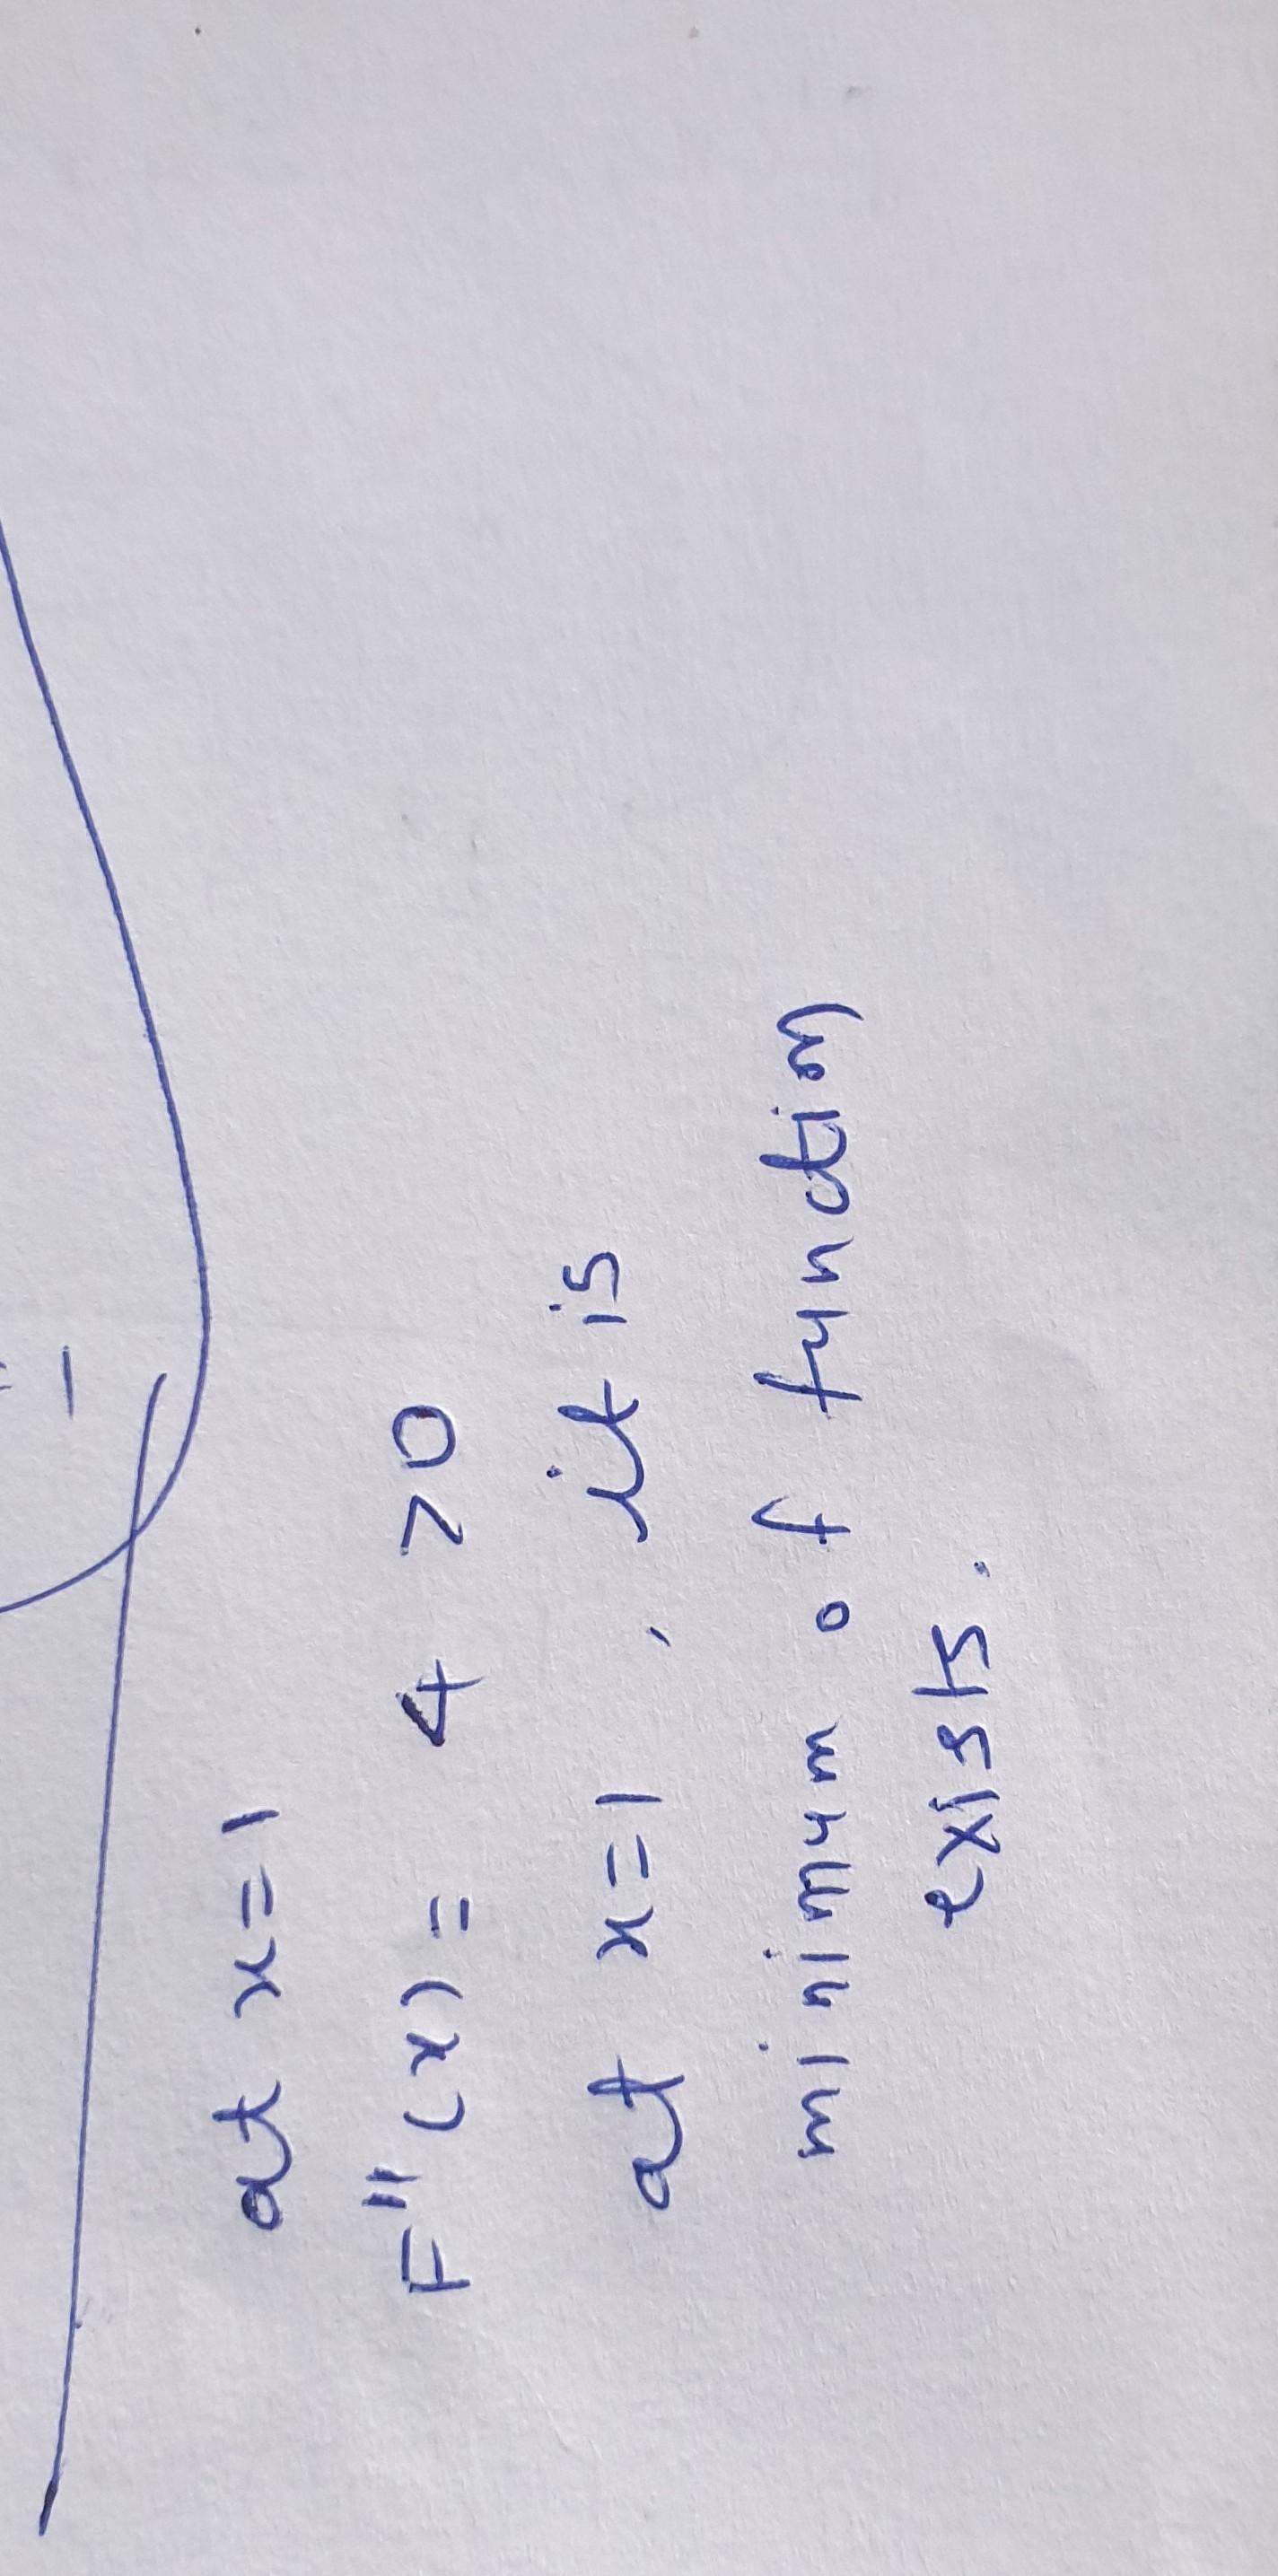 at x=1
F"(x) = 4 >0
at x=1, it is
minimum of function
exists.